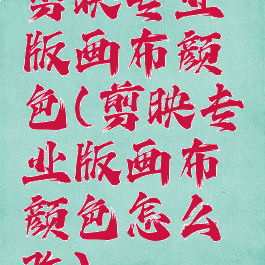 剪映专业
版画布颜
色(剪映专
业版画布
颜色怎么
改)